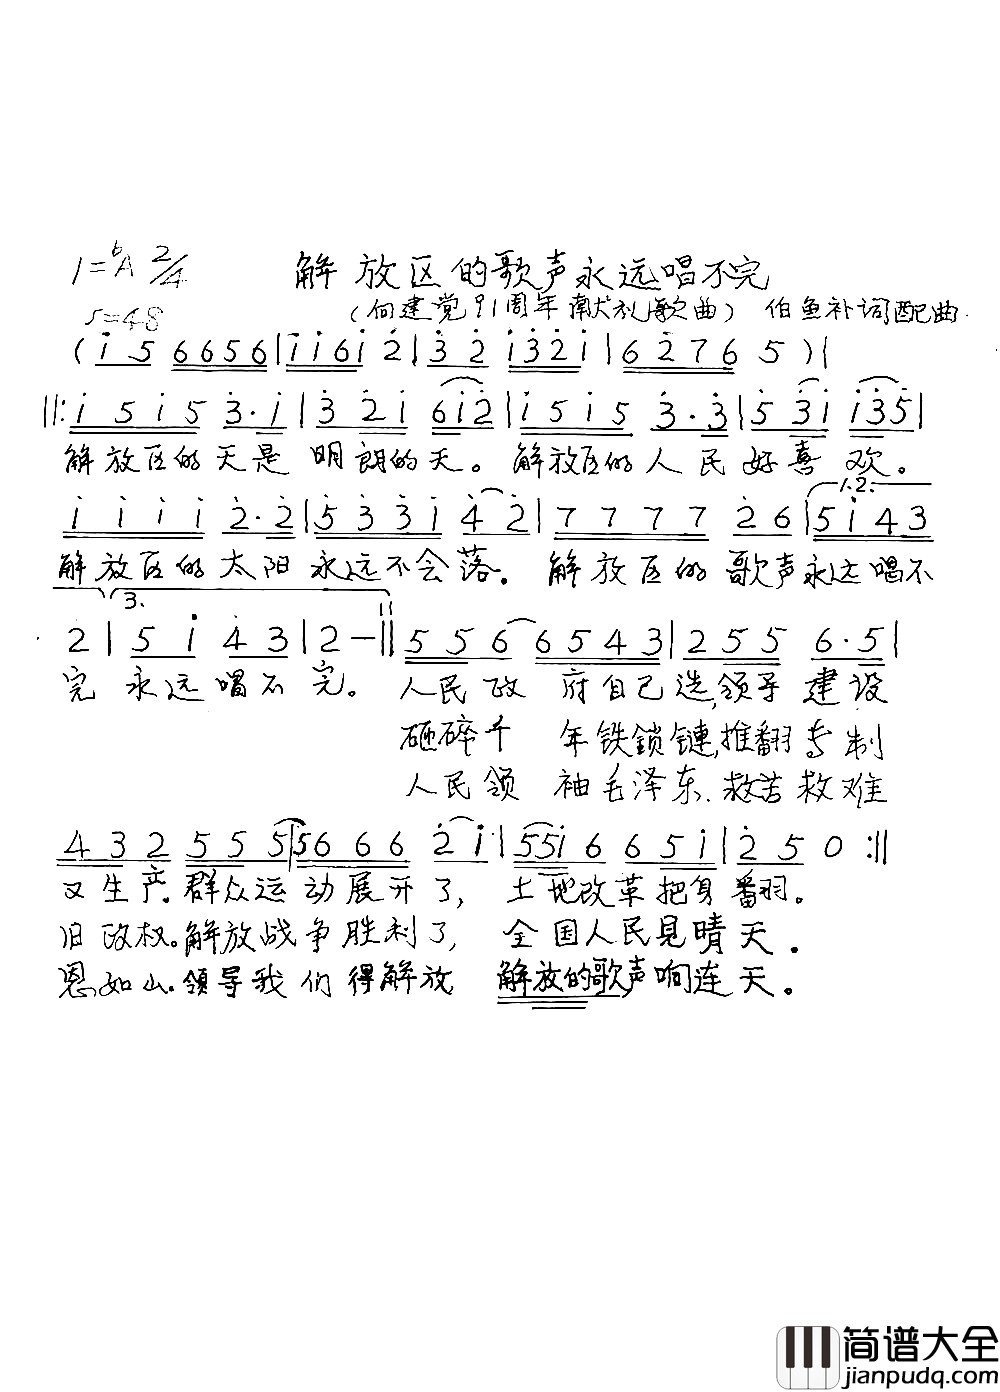 1=ᵇA 2/4 解放区的歌声永远唱不完
♩=48 (向建党91周年献礼歌曲) 伯鱼补词配曲.
(i 5 6656|ii6i 2|3 2 i32i|6276 5)|
||:i5i5 3·i|32i 6i2|i5i5 3·3|53i i35|
解放区的天是 明朗的天。 解放区的人民好喜欢。
1.2.
iiii 2·2|533i 42|7777 26|5i43
解放区的太阳 永远不会落。 解放区的歌声永远唱不
3.
2|5 i 43|2-||556 6543|255 6·5|
完 永远唱不完。 人民政 府自己选,领导建设
砸碎千 年铁鎖鏈,推翻专制
人民领 袖毛泽东.救苦救难
432 555|5666 2i|55i6 65i|250:||
又生产.群众运动展开了, 土地改革把身翻。
旧政权。解放战争胜利了, 全国人民见晴天.
恩如山.领导我们得解放 解放的歌声响连天。
简谱大全
jianpudq.com